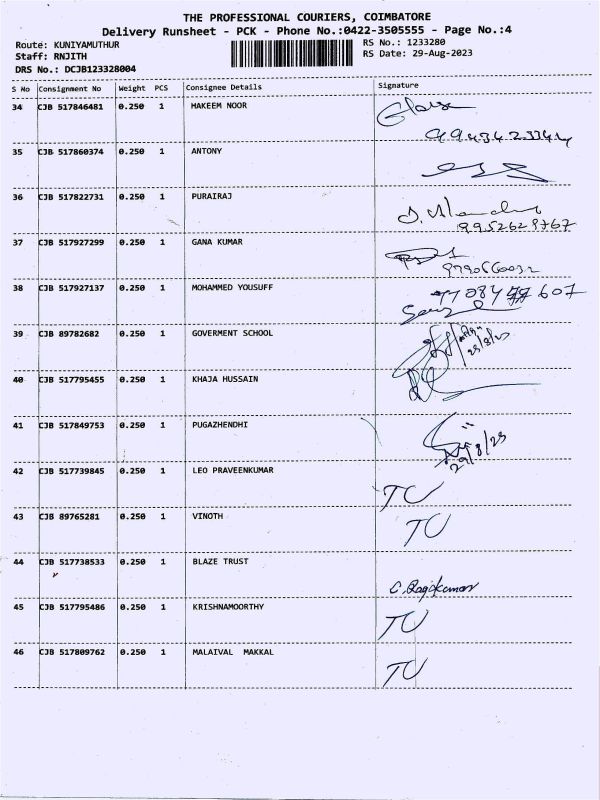 THE PROFESSIONAL COURIERS, COIMBATORE
Delivery Runsheet - PCK - Phone No.:0422-3505555 - Page No.:4
Route: KUNIYAMUTHUR RS No.: 1233280
Staff: RNJITH RS Date: 29-Aug-2023
DRS No.: DCJB123328004
S No Consignment No Weight PCS Consignee Details Signature
34 CJB 517846481 0.250 1 HAKEEM NOOR
35 CJB 517860374 0.250 1 ANTONY
36 CJB 517822731 0.250 1 PURAIRAJ
9952628767
37 CJB 517927299 0.250 1 GANA KUMAR
38 CJB 517927137 0.250 1 MOHAMMED YOUSUFF
39 CJB 89782682 0.250 1 GOVERMENT SCHOOL
40 CJB 517795455 0.250 1 KHAJA HUSSAIN
41 CJB 517849753 0.250 1 PUGAZHENDHI
29/8/23
42 CJB 517739845 0.250 1 LEO PRAVEENKUMAR
TU
43 CJB 89765281 0.250 1 VINOTH
TU
44 CJB 517738533 0.250 1 BLAZE TRUST
C. Rajakumar
45 CJB 517795486 0.250 1 KRISHNAMOORTHY
TU
46 CJB 517809762 0.250 1 MALAIVAL MAKKAL
TU